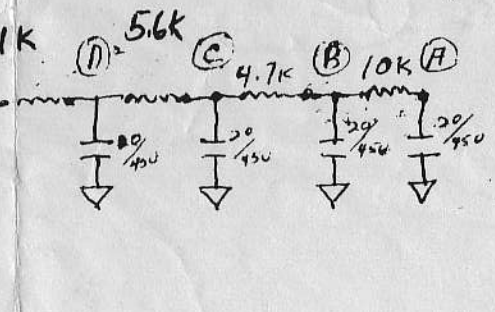 1K
5.6K
D
C
4.7K
B
10K
A
20/450
20/450
20/450
20/450